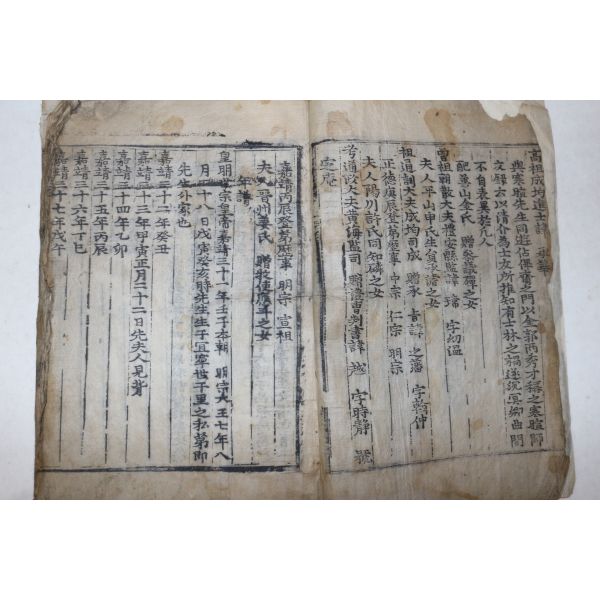 高祖成均進士諱 承華
與寒暄先生同遊佔畢齋之門以金郭兩秀才稱之寒暄師
文錄云以清介為士友所推知有士林之禍遂沉冥鄉曲間
不自表異於凡人
配 山金氏 贈參議 之女
曾祖朝散大夫禮安縣監諱 瑋 字幼溫
夫人平山申氏生員承濬之女
祖通訓大夫成均司成 贈承旨諱 之藩 字翰仲
正德庚辰登第歷事 中宗 仁宗 明宗
夫人陽川許氏同知磷之女
考通政大夫黃海監司 贈禮曹判書諱 越 字時靜 號
定庵
嘉靖丙辰登第歷事 明宗 宣祖
夫人晉州姜氏 贈牧使應斗之女
年譜
皇明世宗皇帝嘉靖三十一年壬子本朝 明宗大王七年八
月二十八日戊寅癸亥時先生生于宜寧世干里之私第即
先生外家也
嘉靖三十二年癸丑
嘉靖三十三年甲寅正月二十二日先夫人見背
嘉靖三十四年乙卯
嘉靖三十五年丙辰
嘉靖三十六年丁巳
嘉靖三十七年戊午